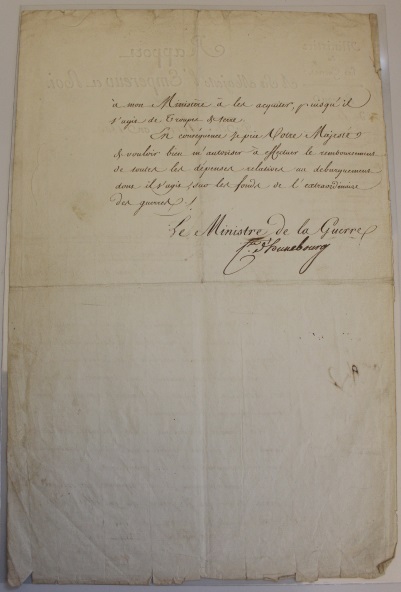 à mon Ministère à les acquiter, puisqu'il
s'agit de Troupes de terre.
En conséquence je prie Votre Majesté
de vouloir bien m'autoriser à effectuer le remboursement
de toutes les dépenses relatives au débarquement
dont il s'agit, sur les fonds de l'extraordinaire
des guerres.
Le Ministre de la Guerre,
d'hunebourg